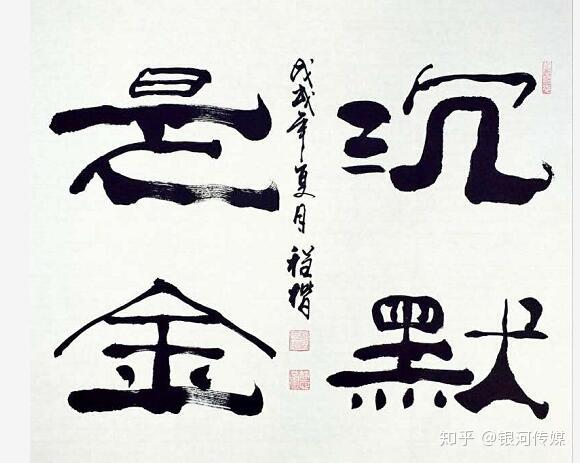 沉默
是金
戊戌年夏月程楷
知乎 @银河传媒